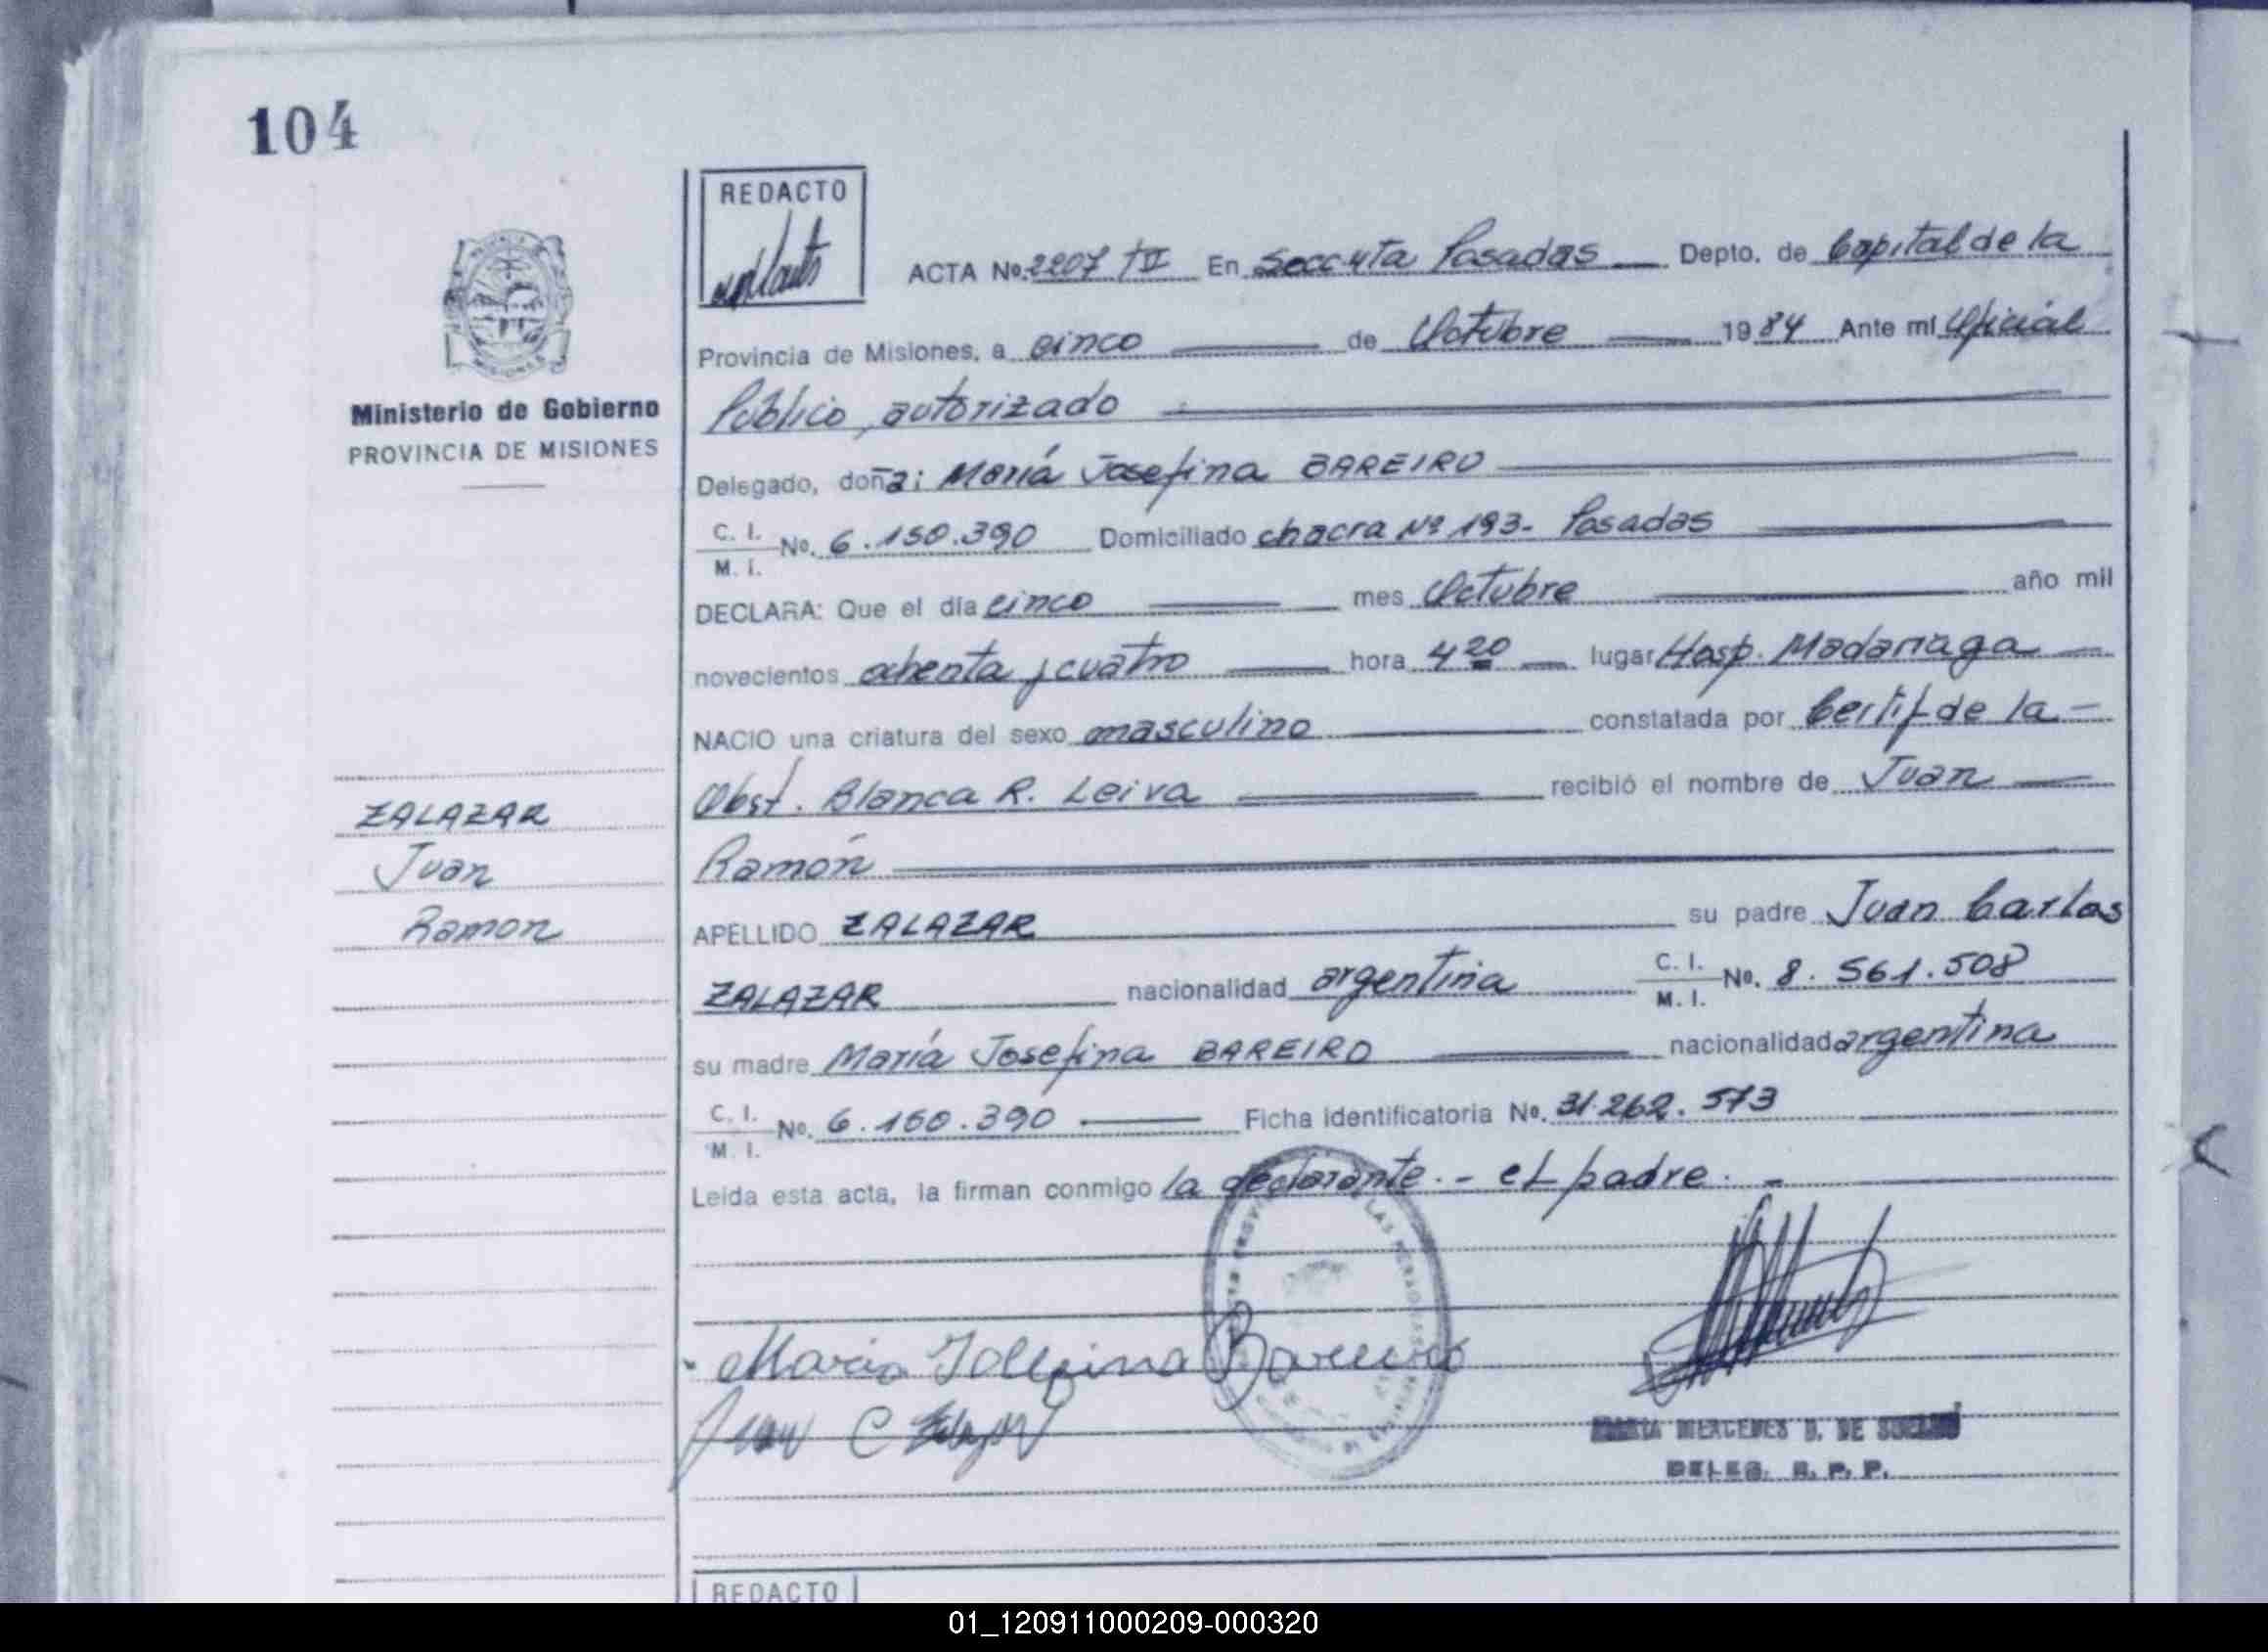 104
REDACTO
ACTA No. 2207 / II En Secc 4ta Posadas Depto. de Capital de la
Provincia de Misiones, a cinco de Octubre 1984 Ante mi Oficial
Público autorizado
Ministerio de Gobierno
PROVINCIA DE MISIONES
Delegado, doña: María Josefina BAREIRO
C. I.
M. I. No. 6.150.390 Domiciliado chacra Nº 193- Posadas
DECLARA: Que el día cinco mes Octubre año mil
novecientos ochenta y cuatro hora 4 20 lugar Hosp. Madariaga
NACIO una criatura del sexo masculino constatada por Certif de la
Obst. Blanca R. Leiva recibió el nombre de Juan
Ramón
ZALAZAR
Juan
Ramon
APELLIDO ZALAZAR su padre Juan Carlos
ZALAZAR nacionalidad argentina C. I.
M. I. No. 8.561.508
su madre María Josefina BAREIRO nacionalidad argentina
C. I.
M. I. No. 6.150.390 Ficha identificatoria No. 31.262.573
Leida esta acta, la firman conmigo la declarante.- el padre.-
Maria Josefina Bareiro
Juan C
MARIA MERCEDES D. DE
DELEG. R. P. P.
REDACTO
01_120911000209-000320